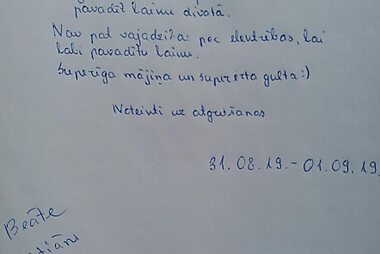 pavadīt laiku divatā.
Nav pat vajadzība pēc elektrības, lai
labi pavadītu laiku.
Superīga mājiņa un superērta gulta :)
Noteikti uz atgriešanos
31.08.19. - 01.09.19
Beāte